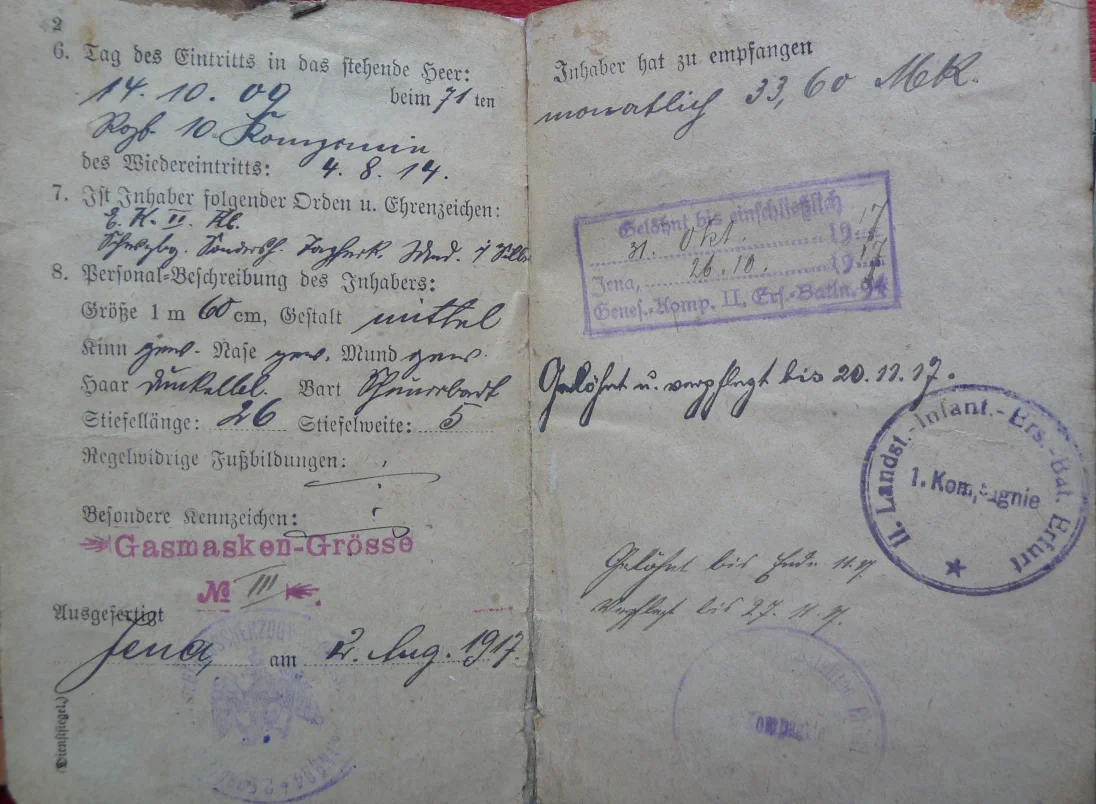 2
6. Tag des Eintritts in das stehende Heer:
14. 10. 09 beim 71 ten
Rgt. 10. Kompanie
des Wiedereintritts: 4. 8. 14.
7. Ist Inhaber folgender Orden u. Ehrenzeichen:
E. K. II. Kl.
Schwzbg. Sondersh. Med. i/ Silb.
8. Personal-Beschreibung des Inhabers:
Größe 1 m 60 cm, Gestalt mittel
Kinn gew. Nase gew. Mund gew.
Haar dunkelbl. Bart Schnurrbart
Stiefellänge: 26 Stiefelweite: 5
Regelwidrige Fußbildungen:
Besondere Kennzeichen:
Gasmasken-Grösse
№ III
Ausgefertigt
Jena, am 2. Aug. 1917.
(Dienstsiegel.)
Inhaber hat zu empfangen
monatlich 33,60 Mk.
Gelöhnt bis einschließlich
31. Okt. 1917
Jena, 26. 10. 1917
Genes.-Komp. II, Ers.-Batln. 94
Gelöhnt u. verpflegt bis 20. 11. 17.
II. Landst.-Infant.-Ers.-Bat. Erfurt
1. Kompagnie
Gelöhnt bis Ende 11.17
Verpflegt bis 27. 11. 17.
Kompagnie